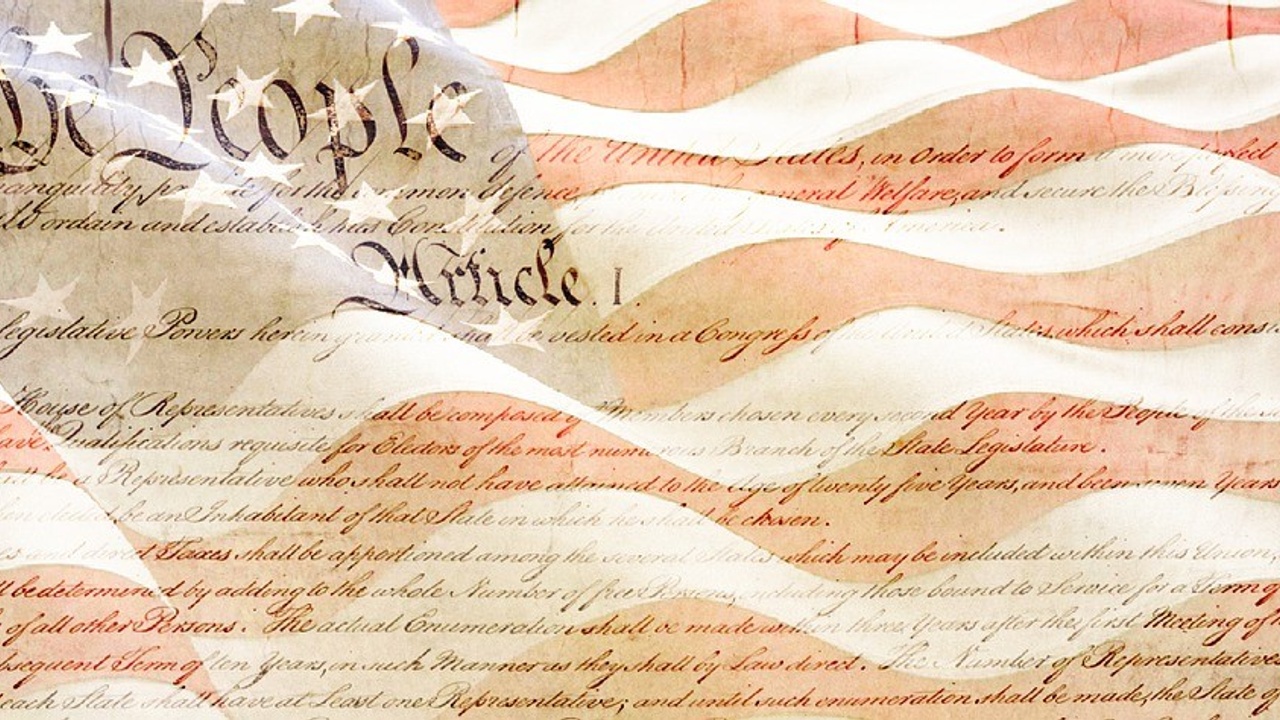 he People of the United States, in Order to form a more perfect
anquility, provide for the common defence, neral Welfare, and secure the Blessing
ordain and establish this Constitution for the United States of America.
Article. I.
legislative Powers herein granted shall be vested in a Congress of the United States, which shall cons
House of Representatives shall be composed of Members chosen every second Year by the People of the
have Qualifications requisite for Electors of the most numerous Branch of the State Legislature.
all be a Representative who shall not have attained to the Age of twenty five Years, and been seven Years
be an Inhabitant of that State in which he shall be chosen.
es and direct Taxes shall be apportioned among the several States which may be included within this Union,
ll be determined by adding to the whole Number of free Persons, including those bound to Service for a Term of
of all other Persons. The actual Enumeration shall be made within three Years after the first Meeting of
bsequent Term of ten Years, in such Manner as they shall by Law direct. The Number of Representatives
each State shall have at Least one Representative; and until such enumeration shall be made, the State of